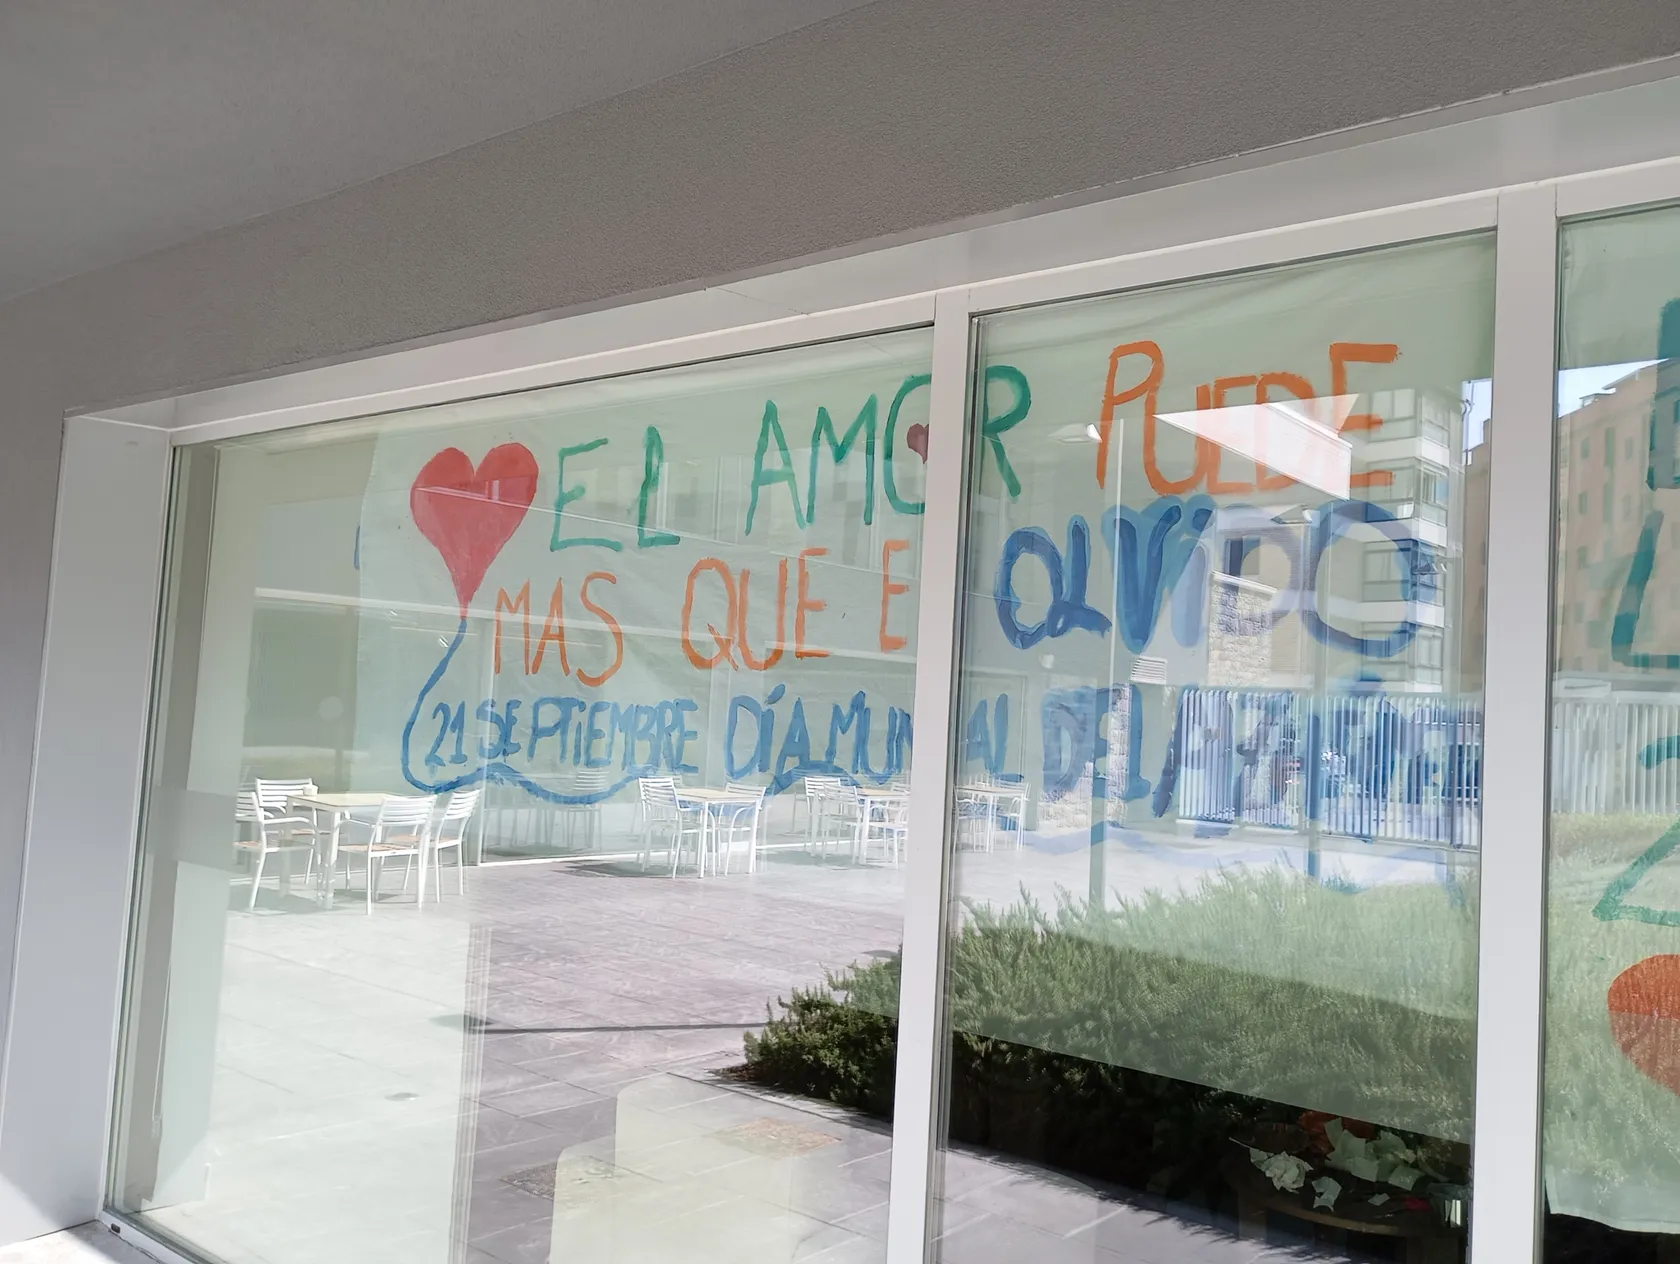 EL AMOR PUEDE
MAS QUE E OLVIDO
21 SEPTIEMBRE DÍA MUNDIAL DEL